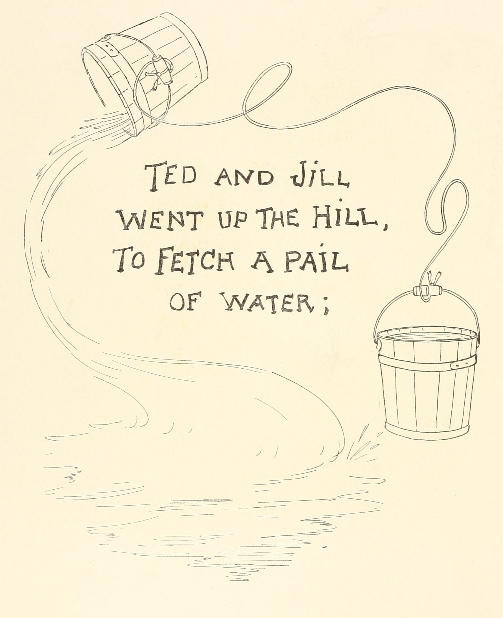 TED AND JILL
WENT UP THE HILL,
TO FETCH A PAIL
OF WATER;